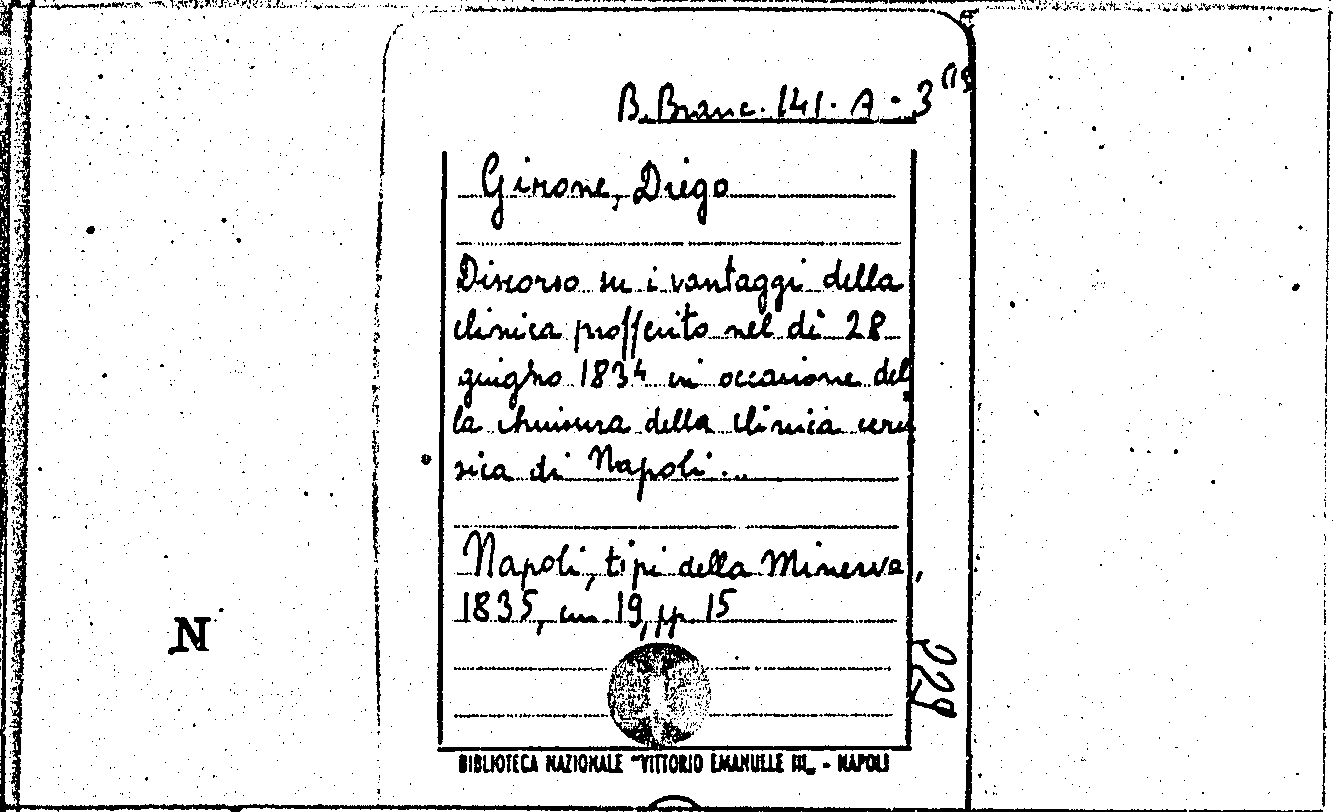 B. Branc. 141. A. 3 (15
Girone, Diego
Discorso su i vantaggi della
clinica profferito nel dì 28
giugno 1834 in occasione del
la chiusura della clinica ceru
sica di Napoli...
Napoli, tipi della Minerva,
1835, cm. 19, pp. 15
N
229
BIBLIOTECA NAZIONALE "VITTORIO EMANUELE III„ - NAPOLI